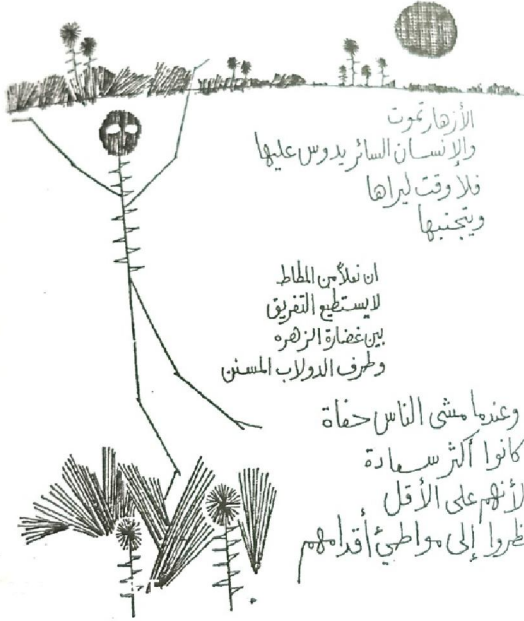 الأزهار تموت
والإنسان السائر يدوس عليها
فلا وقت ليراها
ويتجنبها
ان نعلاً من المطاط
لا يستطيع التفريق
بين غضارة الزهره
وطرف الدولاب المسنن
وعندما مشى الناس حفاة
كانوا أكثر سعادة
لأنهم على الأقل
ظروا إلى مواطئ أقدامهم